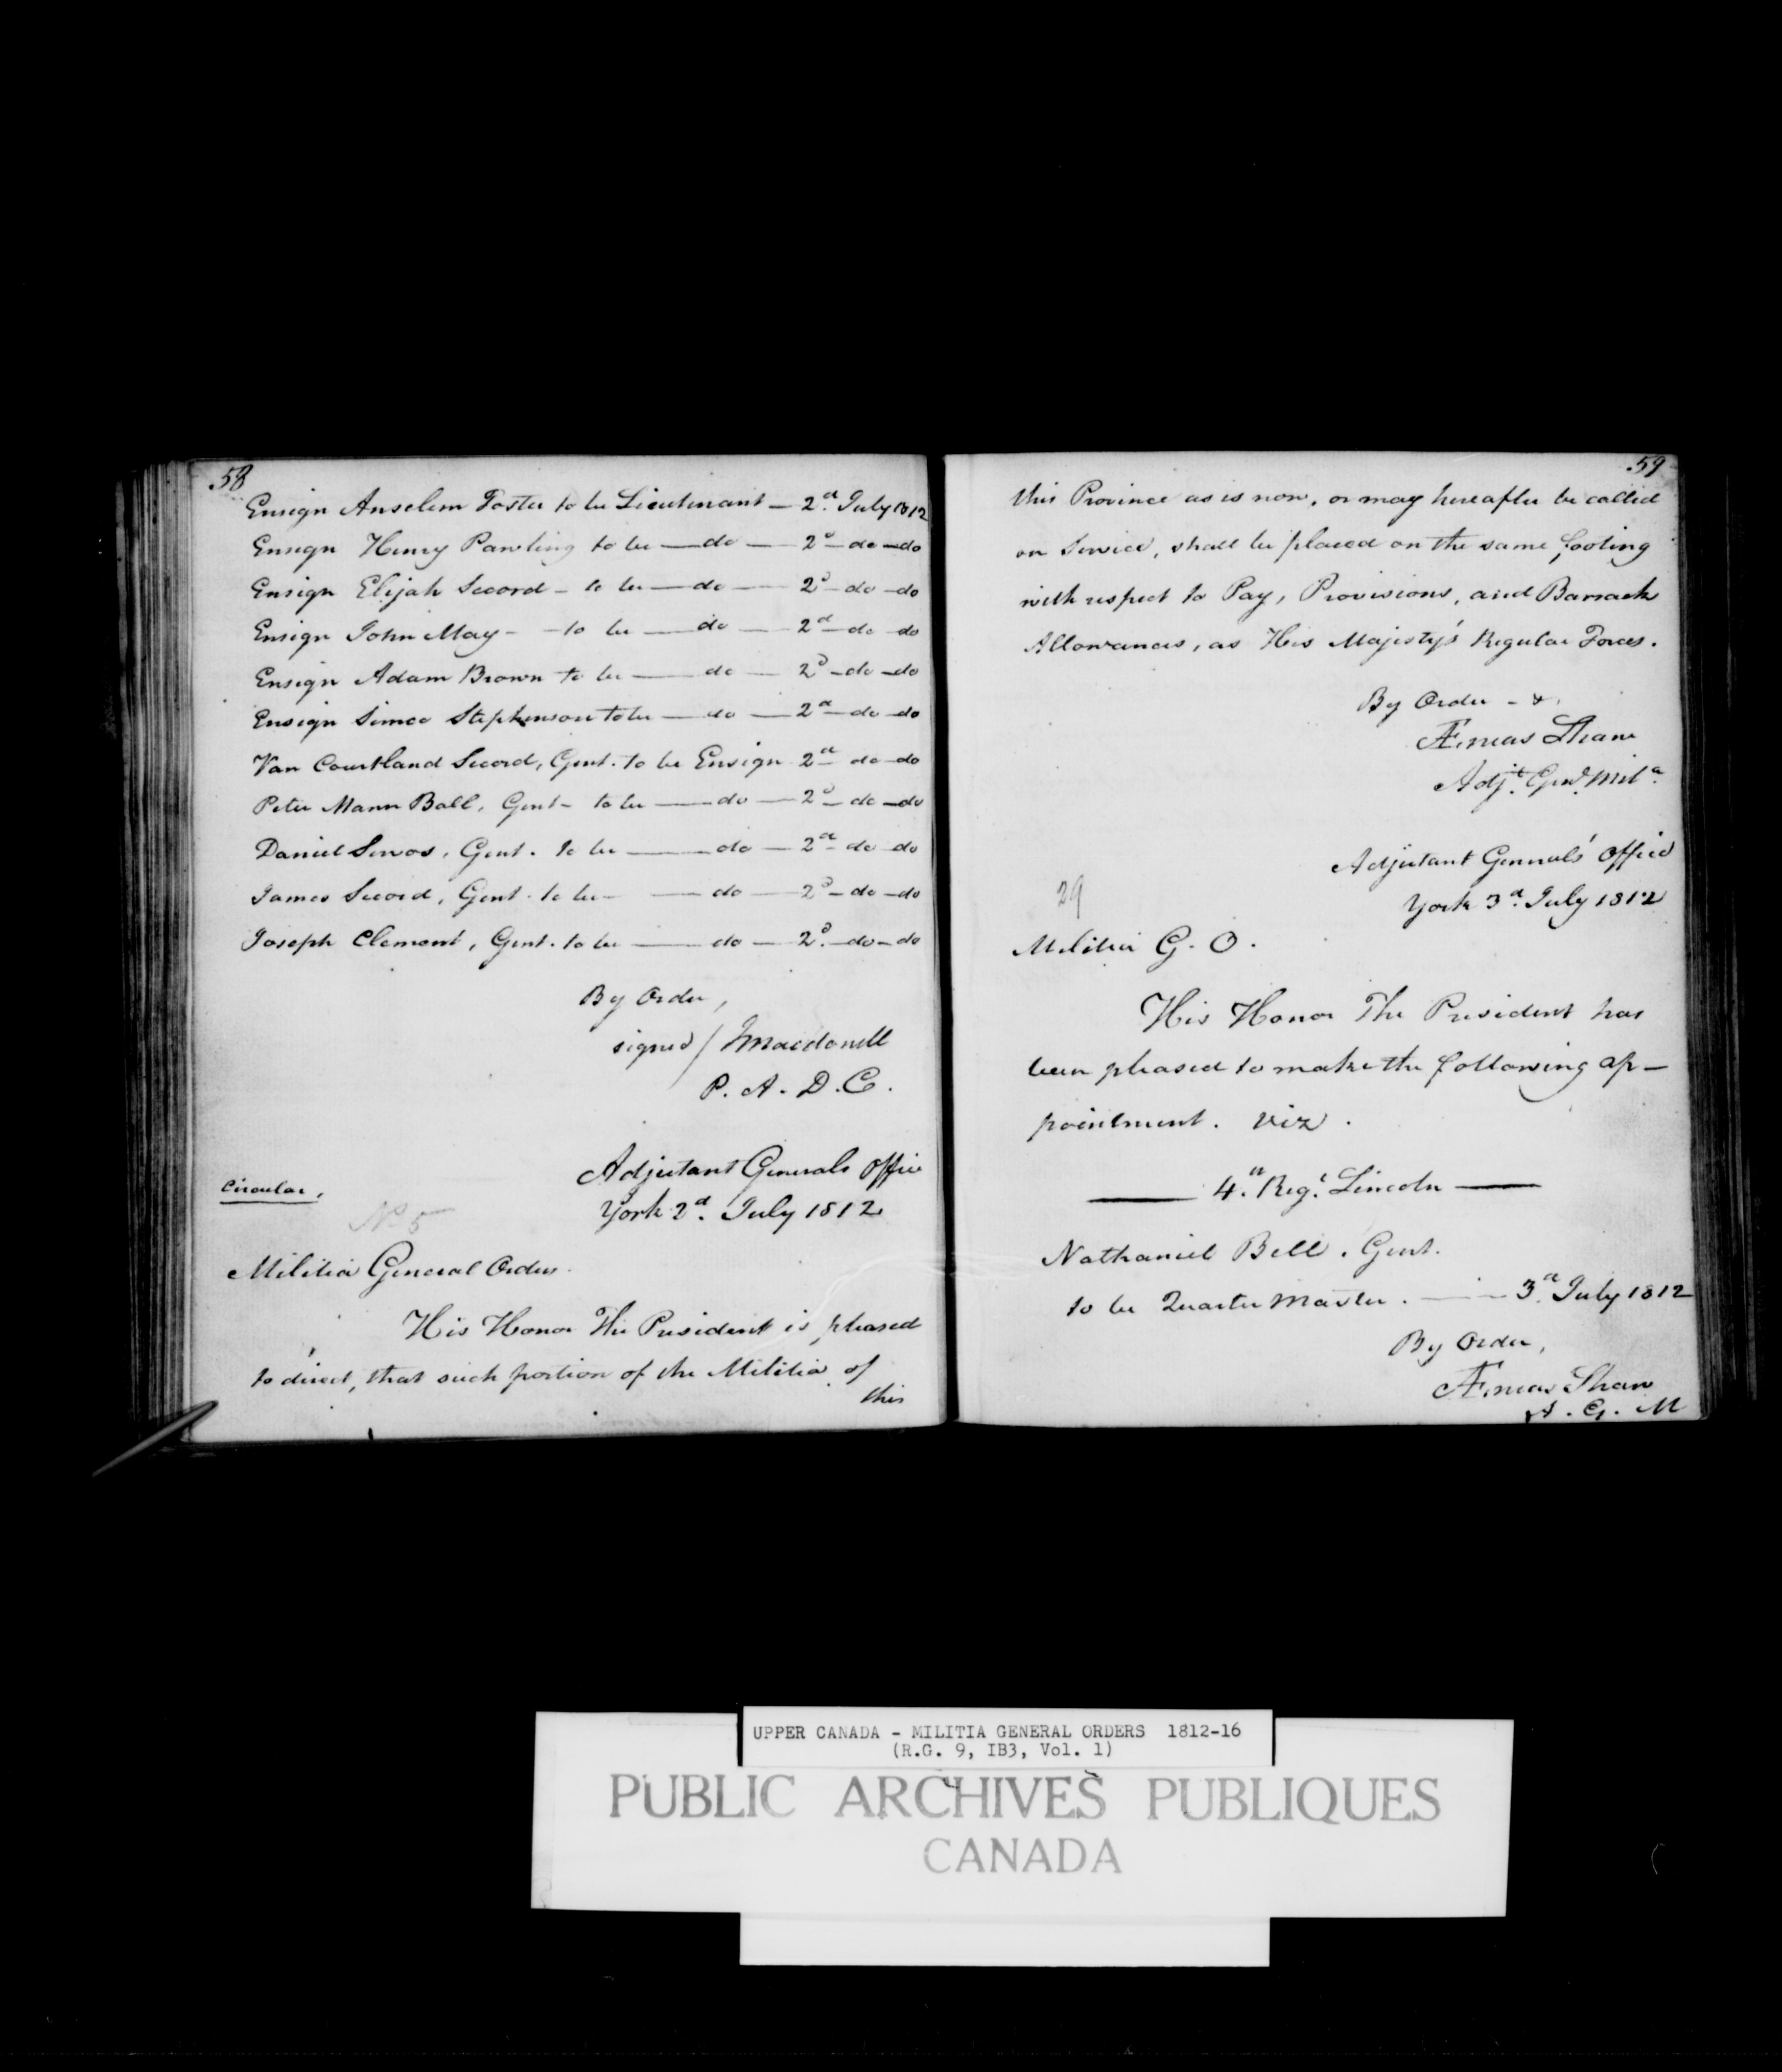 58
Ensign Anselem Foster to be Lieutenant — 2d. July 1812
Ensign Henry Pawling to be — do — 2d — do — do
Ensign Elijah Secord — to be — do — 2d — do — do
Ensign John May — — to be — do — 2d — do do
Ensign Adam Brown to be — do — 2d — do — do
Ensign Simco Stephenson to be — do — 2d — do — do
Van Courtland Secord, Gent. to be Ensign 2d — do — do
Peter Mann Ball, Gent — to be — do — 2d — do — do
Daniel Servos, Gent. to be — do — 2d — do — do
James Secord, Gent. to be — — do — 2d — do — do
Joseph Clement, Gent. to be — do — 2d. — do — do
By Order,
signed / J Macdonell
P. A. D. C.
Adjutant Generals Office
Circular,
York 2d. July 1812
No 5
Militia General Orders.
His Honor The President is pleased
to direct, that such portion of the Militia of
this
59
this Province as is now, or may hereafter be called
on Service, shall be placed on the same footing
with respect to Pay, Provisions, and Barrack
Allowances, as His Majesty's Regular Forces.
By Order — &.
Æneas Shaw
Adjt. Genl. Mila.
Adjutant Generals' Office
29
York 3d. July 1812
Militia G. O.
His Honor The President has
been pleased to make the following ap —
pointment. viz.
— 4th. Regt. Lincoln —
Nathaniel Bell, Gent.
to be Quarter Master. — — 3d. July 1812
By Order,
Æneas Shaw
A. G. M
UPPER CANADA - MILITIA GENERAL ORDERS 1812-16
(R.G. 9, IB3, Vol. 1)
PUBLIC ARCHIVES PUBLIQUES
CANADA